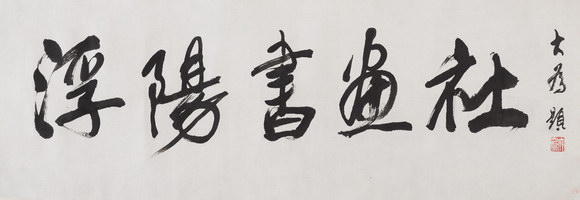 浮陽書畫社
大为題